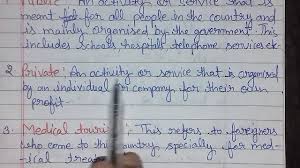 Public : An activity or service that is
meant for all people in the country and
is mainly organised by the government. This
includes schools, hospitals, telephone services etc
2 Private : An activity or service that is organised
by an individual or company for their own
profit.
3. Medical touri : This refers to foreigners
who come to the country specially for med-
ical trea